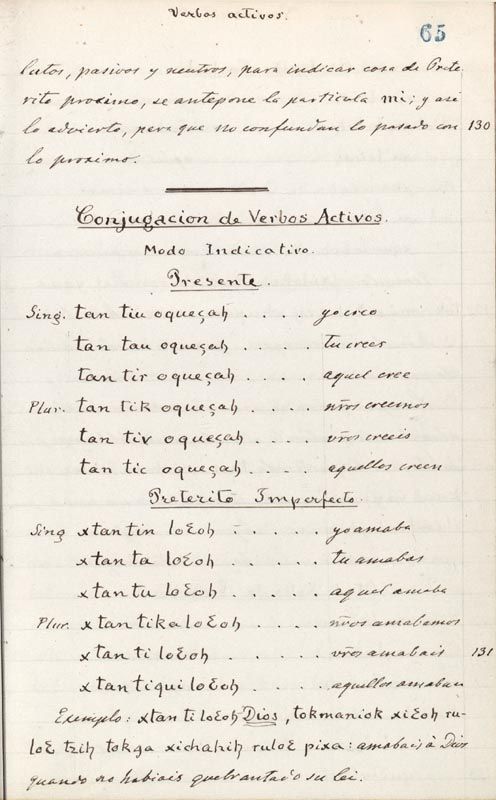 Verbos activos.
65
lutos, pasivos y neutros, para indicar cosa de Prete
rito proximo, se antepone la particula mi; y asi
lo advierto, para que no confundan lo pasado con 130
lo proximo.
Conjugacion de Verbos Activos.
Modo Indicativo.
Presente.
Sing. tan tiu oqueçaḩ . . . . yo creo
tan tau oqueçaḩ . . . . tu crees
tan tir oqueçaḩ . . . . aquel cree
Plur. tan tik oqueçaḩ . . . . nr̃os creemos
tan tiv oqueçaḩ . . . . vr̃os creeis
tan tic oqueçaḩ . . . . aquellos creen
Preterito Imperfecto.
Sing xtan tin loɛoḩ . . . . . yo amaba
xtan ta loɛoḩ . . . . . tu amabas
xtan tu loɛoḩ . . . . . aquel amaba
Plur. xtan tika loɛoḩ . . . . nr̃os amabamos
xtan ti loɛoḩ . . . . . vr̃os amabais 131
xtan tiqui loɛoḩ . . . . aquellos amaban
Exemplo: xtan ti loɛoḩ Dios, tokmaniok xiɛoḩ ru-
loɛ tziḩ tokga xichaḩiḩ ruloɛ pixa: amabais à Dios
quando no habiais quebrantado su lei.